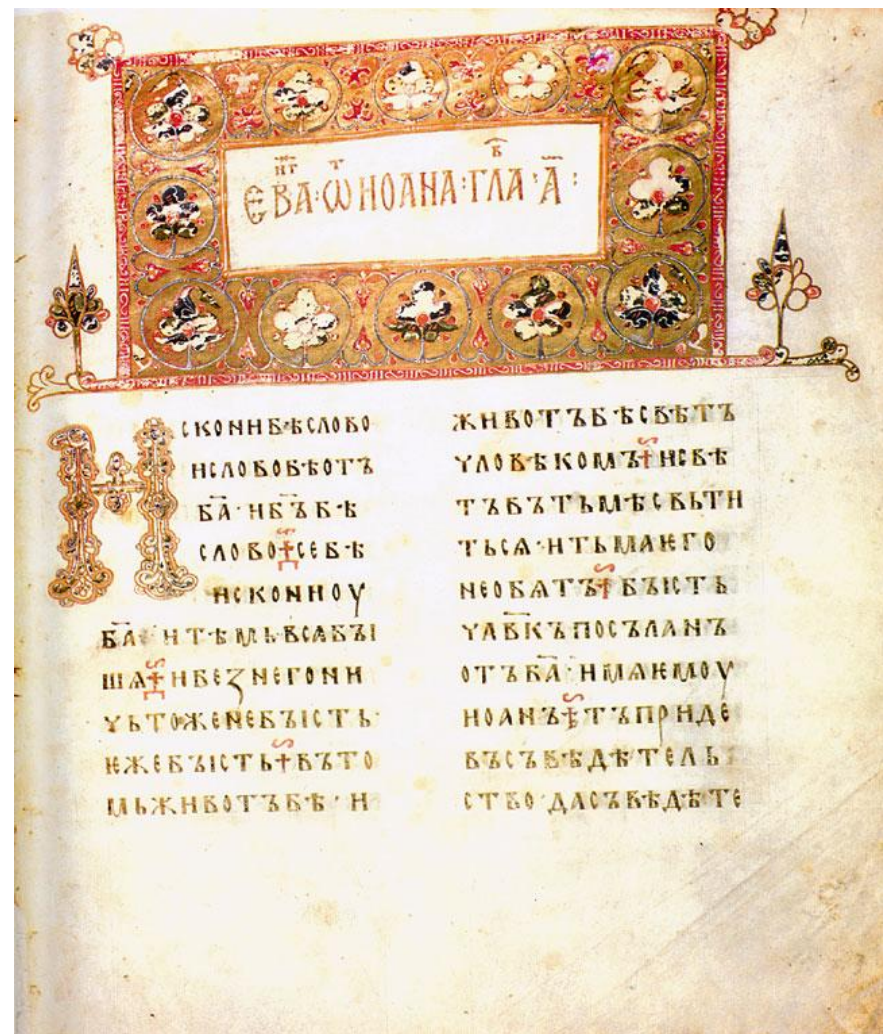 ЕВАНГ · Ѿ ИОАНА · ГЛАВ · А҃ :
ИСКОНИ БѢ СЛОВО
И СЛОВО БѢ ОТЪ
Б҃А · И Б҃Ъ БѢ
СЛОВО СЕ БѢ
ИСКОНИ ОУ
Б҃А · И ТѢМЬ ВСѦ БꙐ
ШѦ И БЕЗ НЕГО НИ
ЧЬТОЖЕ НЕ БꙐСТЬ ·
ѤЖЕ БꙐСТЬ ВЪ ТО
МЬ ЖИВОТЪ БѢ · И
ЖИВОТЪ БѢ СВѢТЪ
ЧЛОВѢКОМЪ И СВѢ
ТЪ ВЪ ТЬМѢ СВЬТИ
ТЬСѦ · И ТЬМА ѤГО
НЕ ОБѦТЪ БꙐСТЬ
ЧЛ҃ВКЪ ПОСЪЛАНЪ
ОТЪ Б҃А · ИМѦ ѤМОУ
ИОАНЪ ТЪ ПРИДЕ
ВЪ СЪВѢДѢТЕЛЬ
СТВО · ДА СЪВѢДѢТЕ